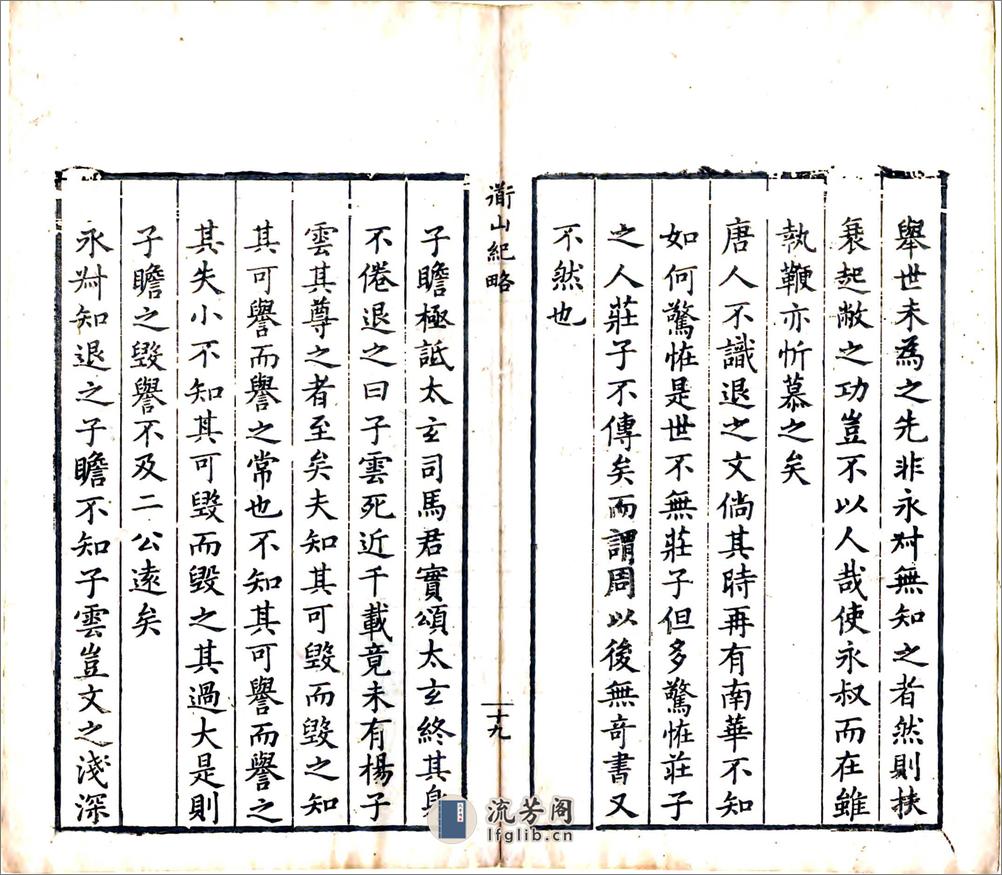 舉世未為之先非永叔無知之者然則扶
衰起敝之功豈不以人哉使永叔而在雖
執鞭亦忻慕之矣
唐人不識退之文倘其時再有南華不知
如何驚恠是世不無莊子但多驚恠莊子
之人莊子不傳矣而謂周以後無奇書又
不然也
衡山紀略
十九
子瞻極詆太玄司馬君實頌太玄終其身
不倦退之曰子雲死近千載竟未有楊子
雲其尊之者至矣夫知其可毀而毀之知
其可譽而譽之常也不知其可譽而譽之
其失小不知其可毀而毀之其過大是則
子瞻之毀譽不及二公遠矣
永叔知退之子瞻不知子雲豈文之淺深
流芳阁
lfglib.cn